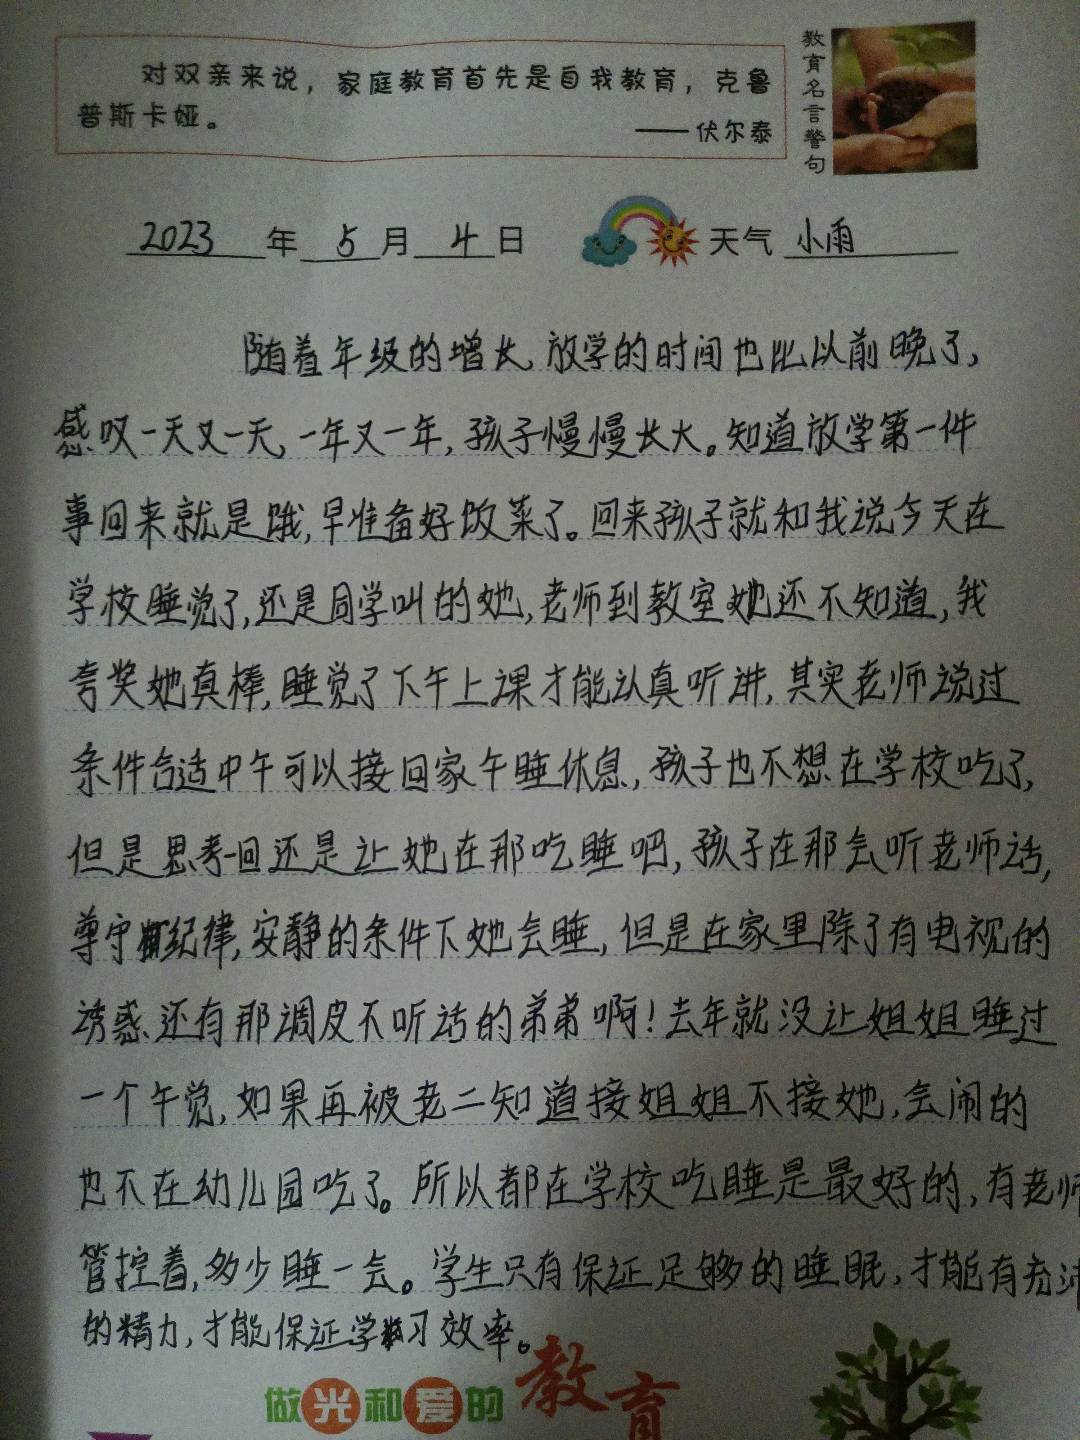 对双亲来说，家庭教育首先是自我教育，克鲁
普斯卡娅。
——伏尔泰
教育名言警句
2023年5月4日 天气 小雨
随着年级的增长，放学的时间也比以前晚了，
感叹一天又一天，一年又一年，孩子慢慢长大。知道放学第一件
事回来就是饿，早准备好饭菜了。回来孩子就和我说今天在
学校睡觉了，还是同学叫的她，老师到教室她还不知道，我
夸奖她真棒，睡觉了下午上课才能认真听讲，其实老师说过
条件合适中午可以接回家午睡休息，孩子也不想在学校吃了，
但是思考一回还是让她在那吃睡吧，孩子在那会听老师话，
尊守纪律，安静的条件下她会睡，但是在家里除了有电视的
诱惑还有那调皮不听话的弟弟啊！去年就没让姐姐睡过
一个午觉，如果再被老二知道接姐姐不接她，会闹的
也不在幼儿园吃了。所以都在学校吃睡是最好的，有老师
管控着，多少睡一会。学生只有保证足够的睡眠，才能有充沛
的精力，才能保证学习效率。
做光和爱的教育